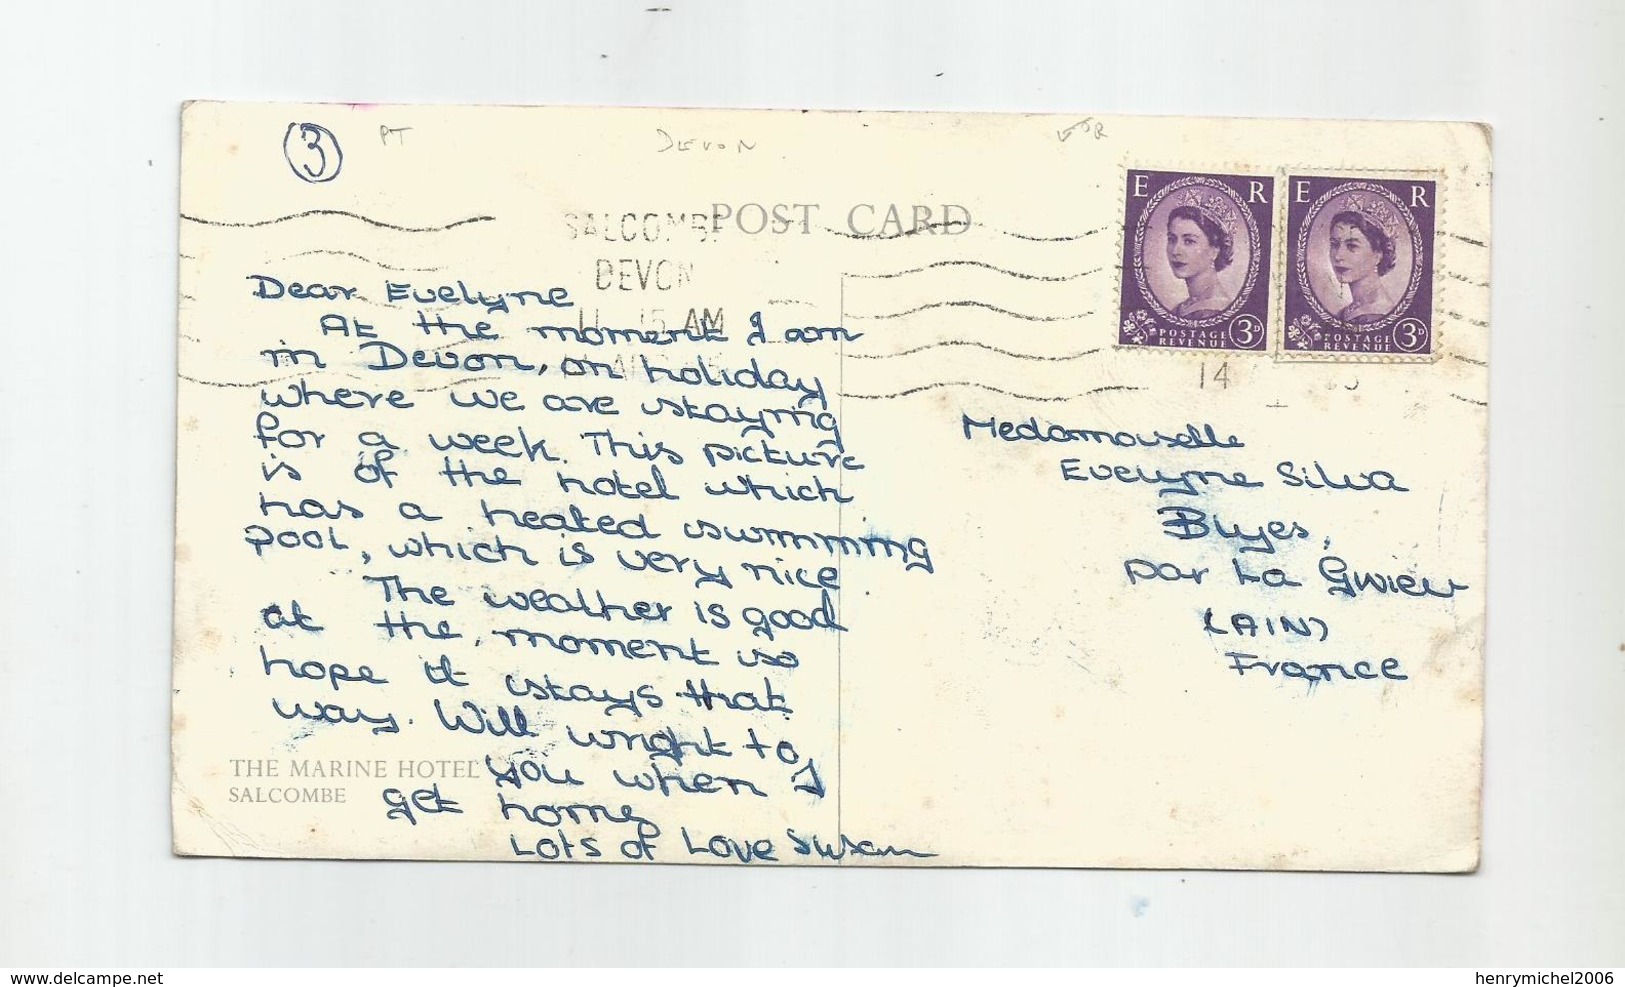 3
PT
DEVON
POST CARD
SALCOMBE
DEVON
15 AM
E R
POSTAGE
REVENUE
3D
E R
POSTAGE
REVENUE
3D
14
Dear Evelyne
At the moment I am
in Devon, on holiday
where we are staying
for a week. This picture
is of the hotel which
has a heated swimming
pool, which is very nice
The weather is good
at the moment so
hope it stays that
way. Will wright to
you when I
get home
Lots of Love Susan
THE MARINE HOTEL
SALCOMBE
Medamouselle
Evelyne Silva
Buyes,
par La Gwieu
(AIN)
France
www.delcampe.net
henrymichel2006